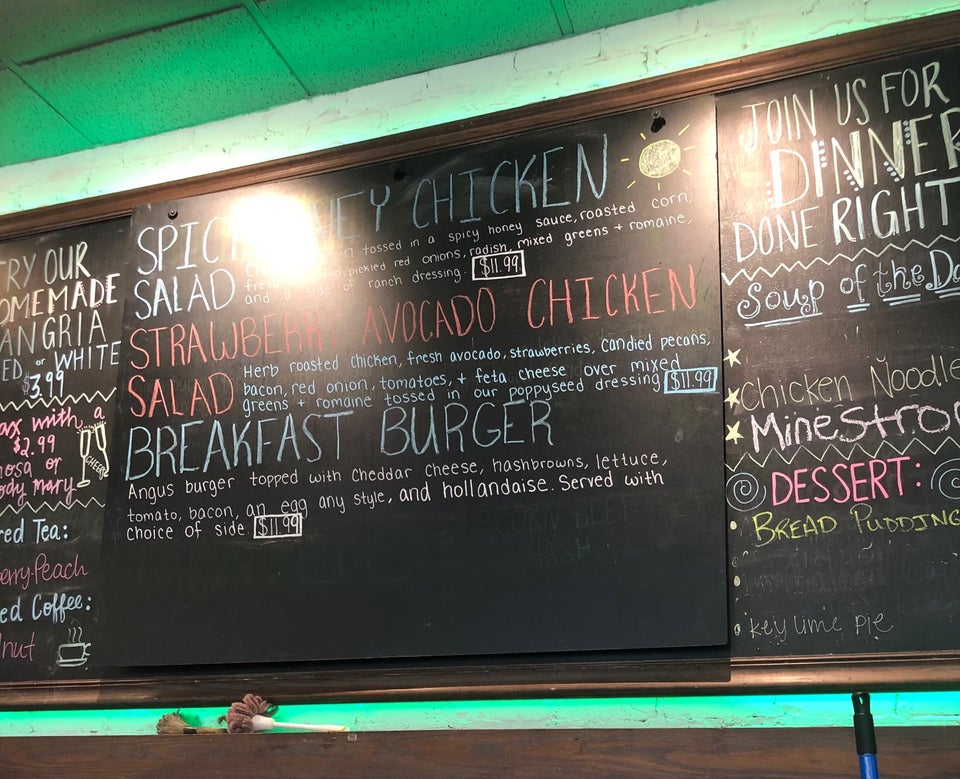 TRY OUR
HOMEMADE
SANGRIA
RED or WHITE
$3.99
with a
$2.99
or
mary
Tea:
Peach
Coffee:
CHEERS
SPICY HONEY CHICKEN
SALAD
tossed in a spicy honey sauce, roasted corn,
pickled red onions, radish, mixed greens + romaine,
and a side of ranch dressing. $11.99
STRAWBERRY AVOCADO CHICKEN
SALAD
Herb roasted chicken, fresh avocado, strawberries, candied pecans,
bacon, red onion, tomatoes, + feta cheese over mixed
greens + romaine tossed in our poppyseed dressing $11.99
BREAKFAST BURGER
Angus burger topped with Cheddar Cheese, hashbrowns, lettuce,
tomato, bacon, an egg any style, and hollandaise. Served with
choice of side. $11.99
CORN BEEF
HASH
JOIN US FOR
DINNER
DONE RIGHT
Soup of the Da
Chicken Noodle
Minestro
DESSERT:
BREAD PUDDING
key lime pie